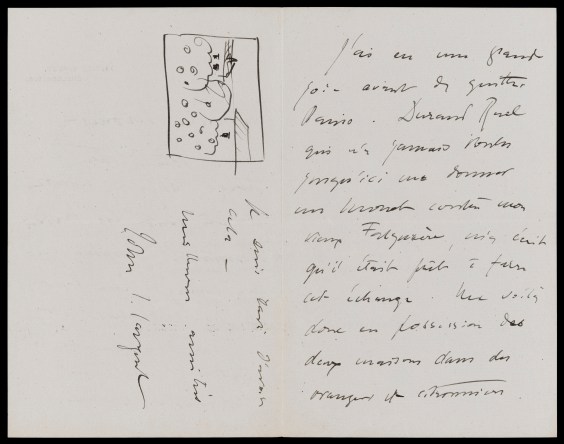 J'ai eu une grand
joie avant de quitter
Paris. Durand Ruel
qui n'a jamais voulu
jusqu'ici me donner
un Monet contre mon
vieux Falguière, m'a écrit
qu'il était prêt à faire
cet échange. Me voilà
donc en possession des
deux maisons dans des
orangers et citronniers
Je suis ravi d'avoir
cela —
amitiés
John S. Sargent